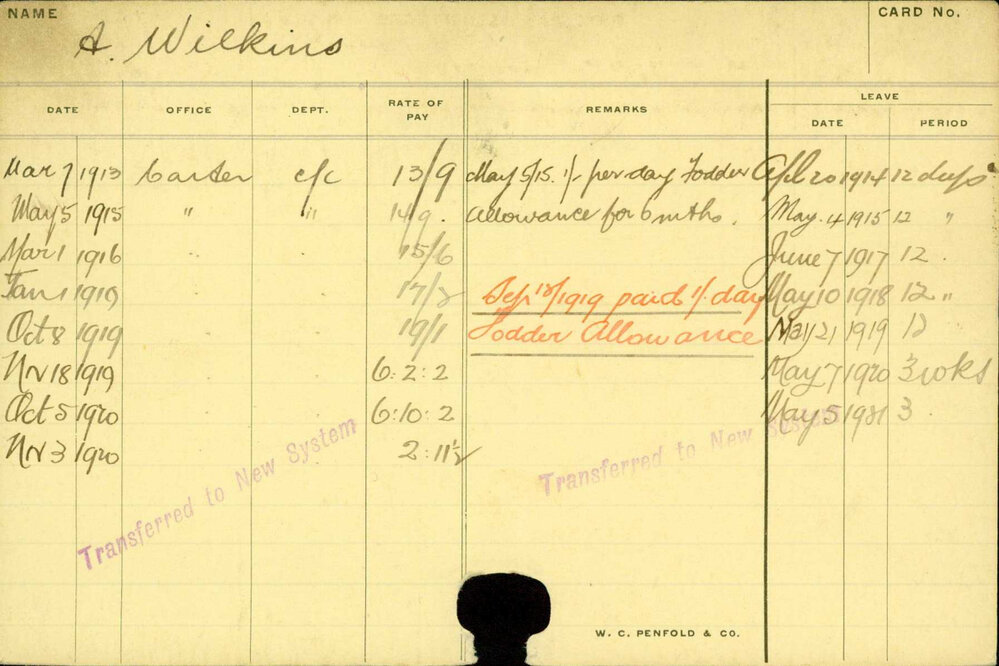 NAME
CARD No.
A. Wilkins
DATE OFFICE DEPT. RATE OF PAY REMARKS LEAVE
DATE PERIOD
Mar 7 1913 Carter c/c 13/9 May 5/15. 1/- per day Fodder Apl 20 1914 12 days
May 5 1915 " " 14/9. Allowance for 6 mths. May. 4 1915 12 "
Mar 1 1916 15/6 June 7 1917 12.
Jan 1 1919 17/2 Sep 18/1919 paid 1/. day May 10 1918 12 "
Oct 8 1919 19/1 Fodder Allowance 21 1919 12
Nv 18 1919 6:2:2 May 7 1920 3 wks
Oct 5 1920 6:10:2 May 5 1921 3
Nv 3 1920 2:11½
Transferred to New System
Transferred to New System
W. C. PENFOLD & CO.